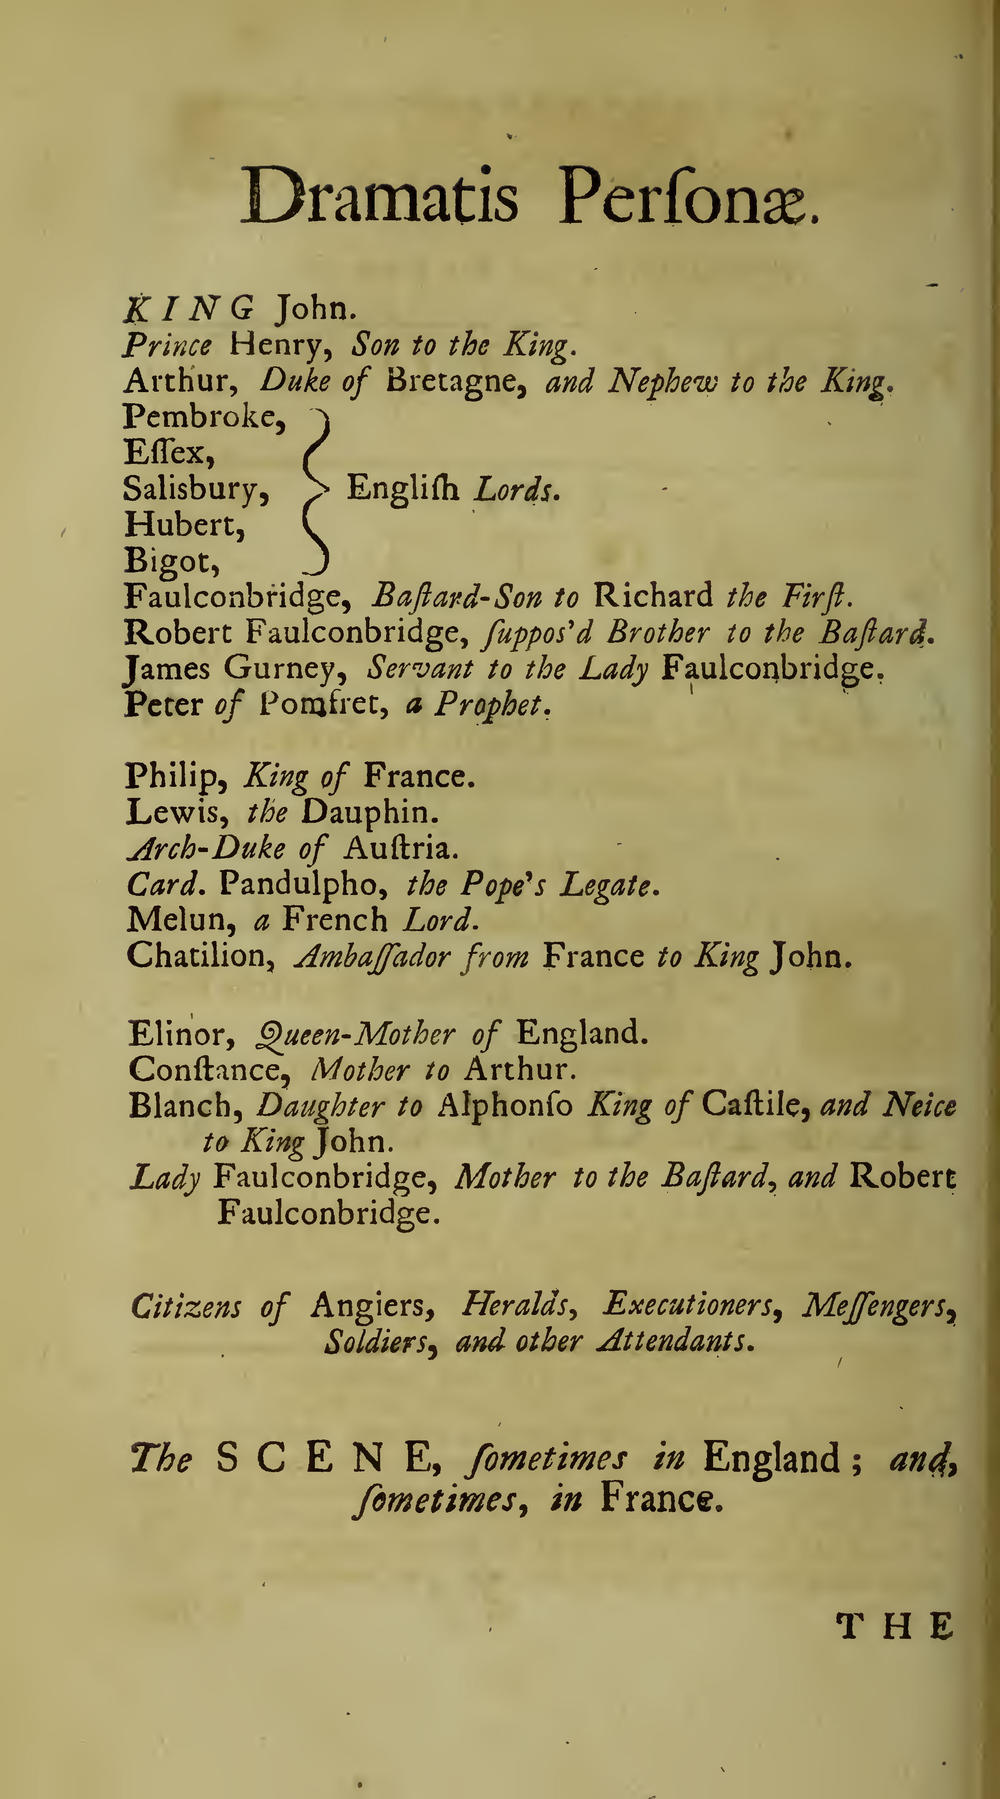 Dramatis Perſonæ.
KING John.
Prince Henry, Son to the King.
Arthur, Duke of Bretagne, and Nephew to the King.
Pembroke,
Eſſex,
Salisbury, Engliſh Lords.
Hubert,
Bigot,
Faulconbridge, Baſtard-Son to Richard the Firſt.
Robert Faulconbridge, ſuppos'd Brother to the Baſtard.
James Gurney, Servant to the Lady Faulconbridge.
Peter of Pomfret, a Prophet.
Philip, King of France.
Lewis, the Dauphin.
Arch-Duke of Auſtria.
Card. Pandulpho, the Pope's Legate.
Melun, a French Lord.
Chatilion, Ambaſſador from France to King John.
Elinor, Queen-Mother of England.
Conſtance, Mother to Arthur.
Blanch, Daughter to Alphonſo King of Caſtile, and Neice
to King John.
Lady Faulconbridge, Mother to the Baſtard, and Robert
Faulconbridge.
Citizens of Angiers, Heralds, Executioners, Meſſengers,
Soldiers, and other Attendants.
The SCENE, ſometimes in England; and,
ſometimes, in France.
THE